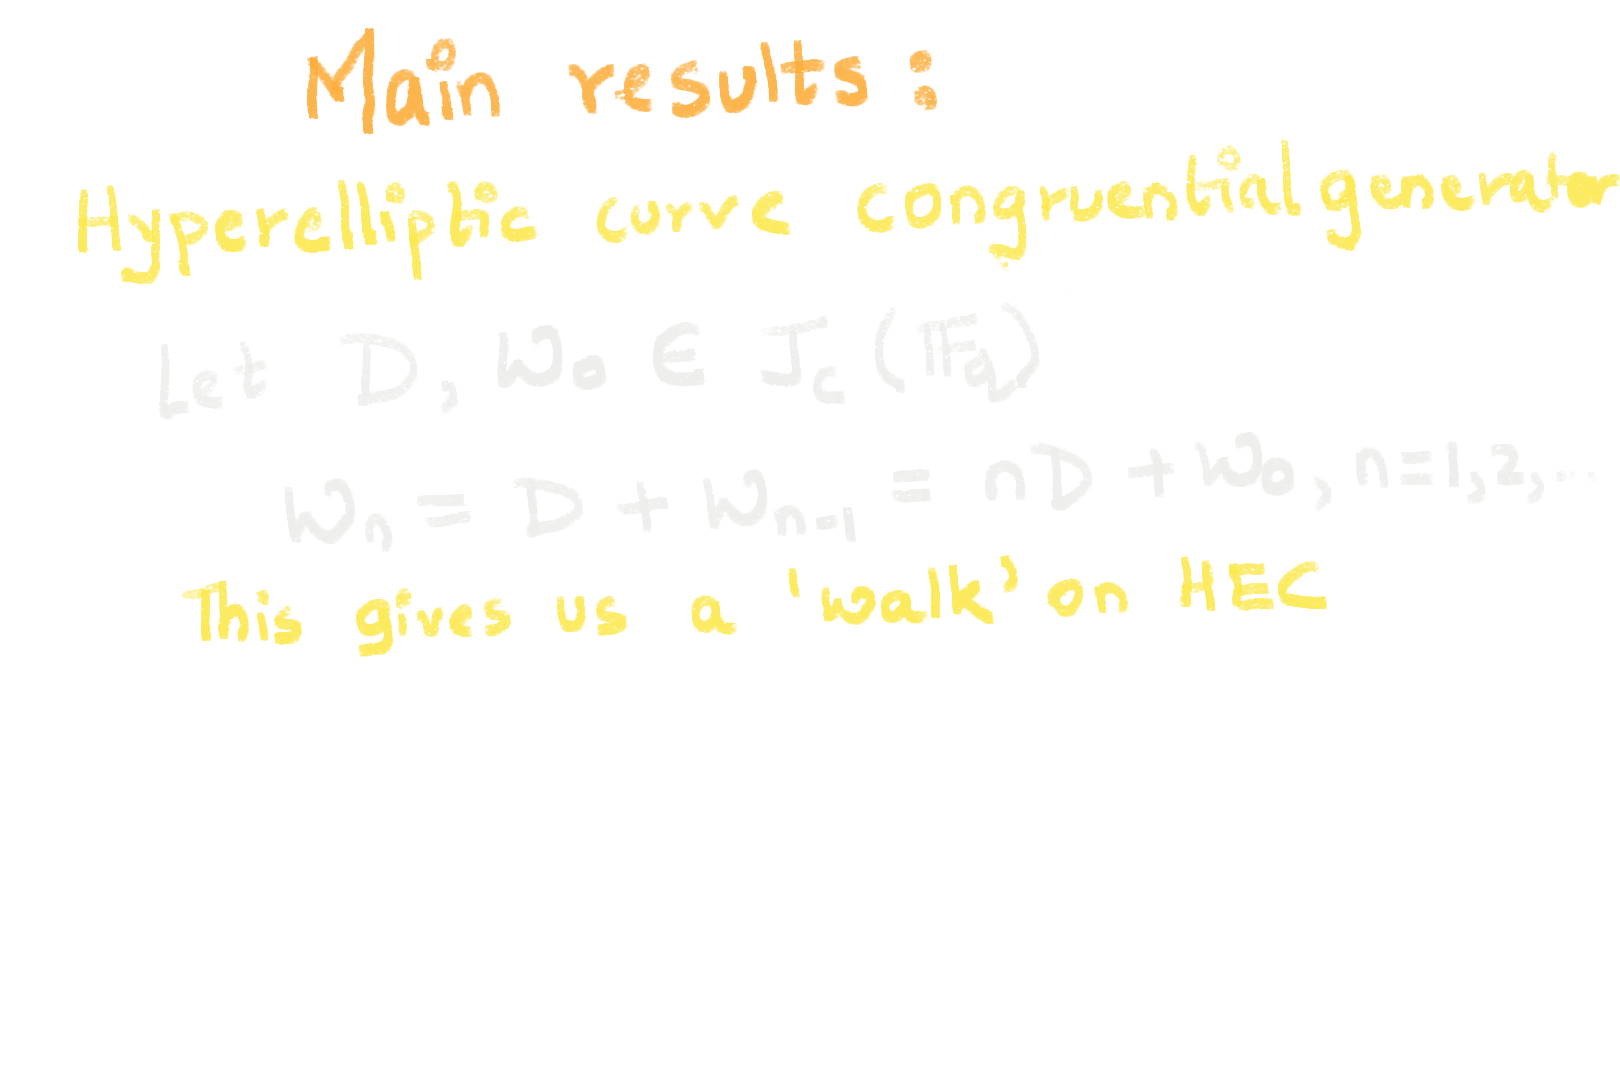 Main results :
Hyperelliptic curve congruential generator
Let D, W₀ ∈ J_C (𝔽_q)
Wₙ = D + Wₙ₋₁ = nD + W₀, n=1,2,...
This gives us a 'walk' on HEC